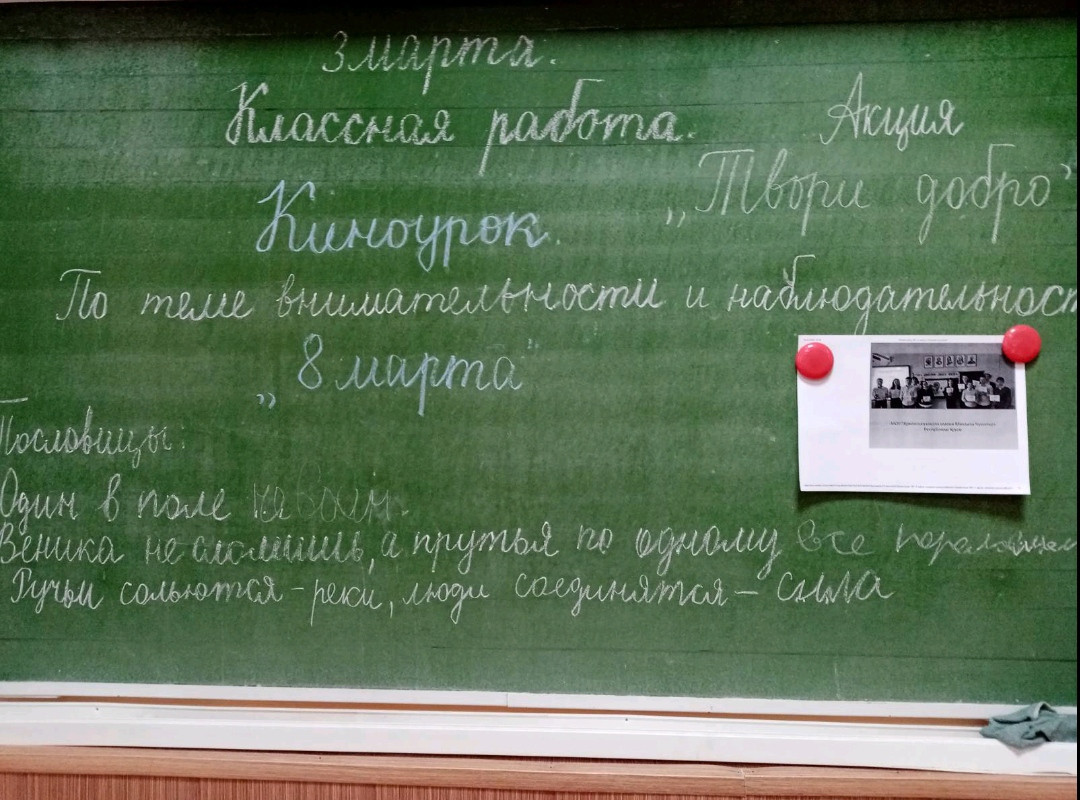 3 марта.
Классная работа.
Акция
„Твори добро"
Киноурок.
По теме внимательности и наблюдательност
„8 марта"
Пословицы:
Один в поле не воин.
Веника не сломишь, а прутья по одному все
Ручьи сольются - реки, люди соединятся - сила